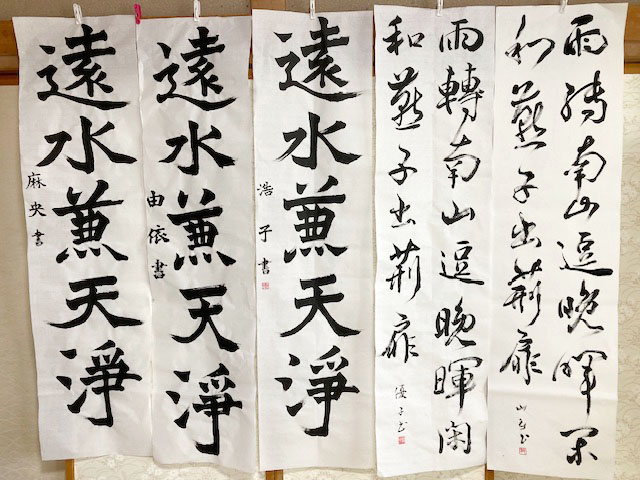 雨轉南山逗晩暉閑
和燕子出荊扉
雨轉南山逗晩暉閑
和燕子出荊扉
優子書
遠水兼天淨
浩子書
遠水兼天淨
由依書
遠水兼天淨
麻央書